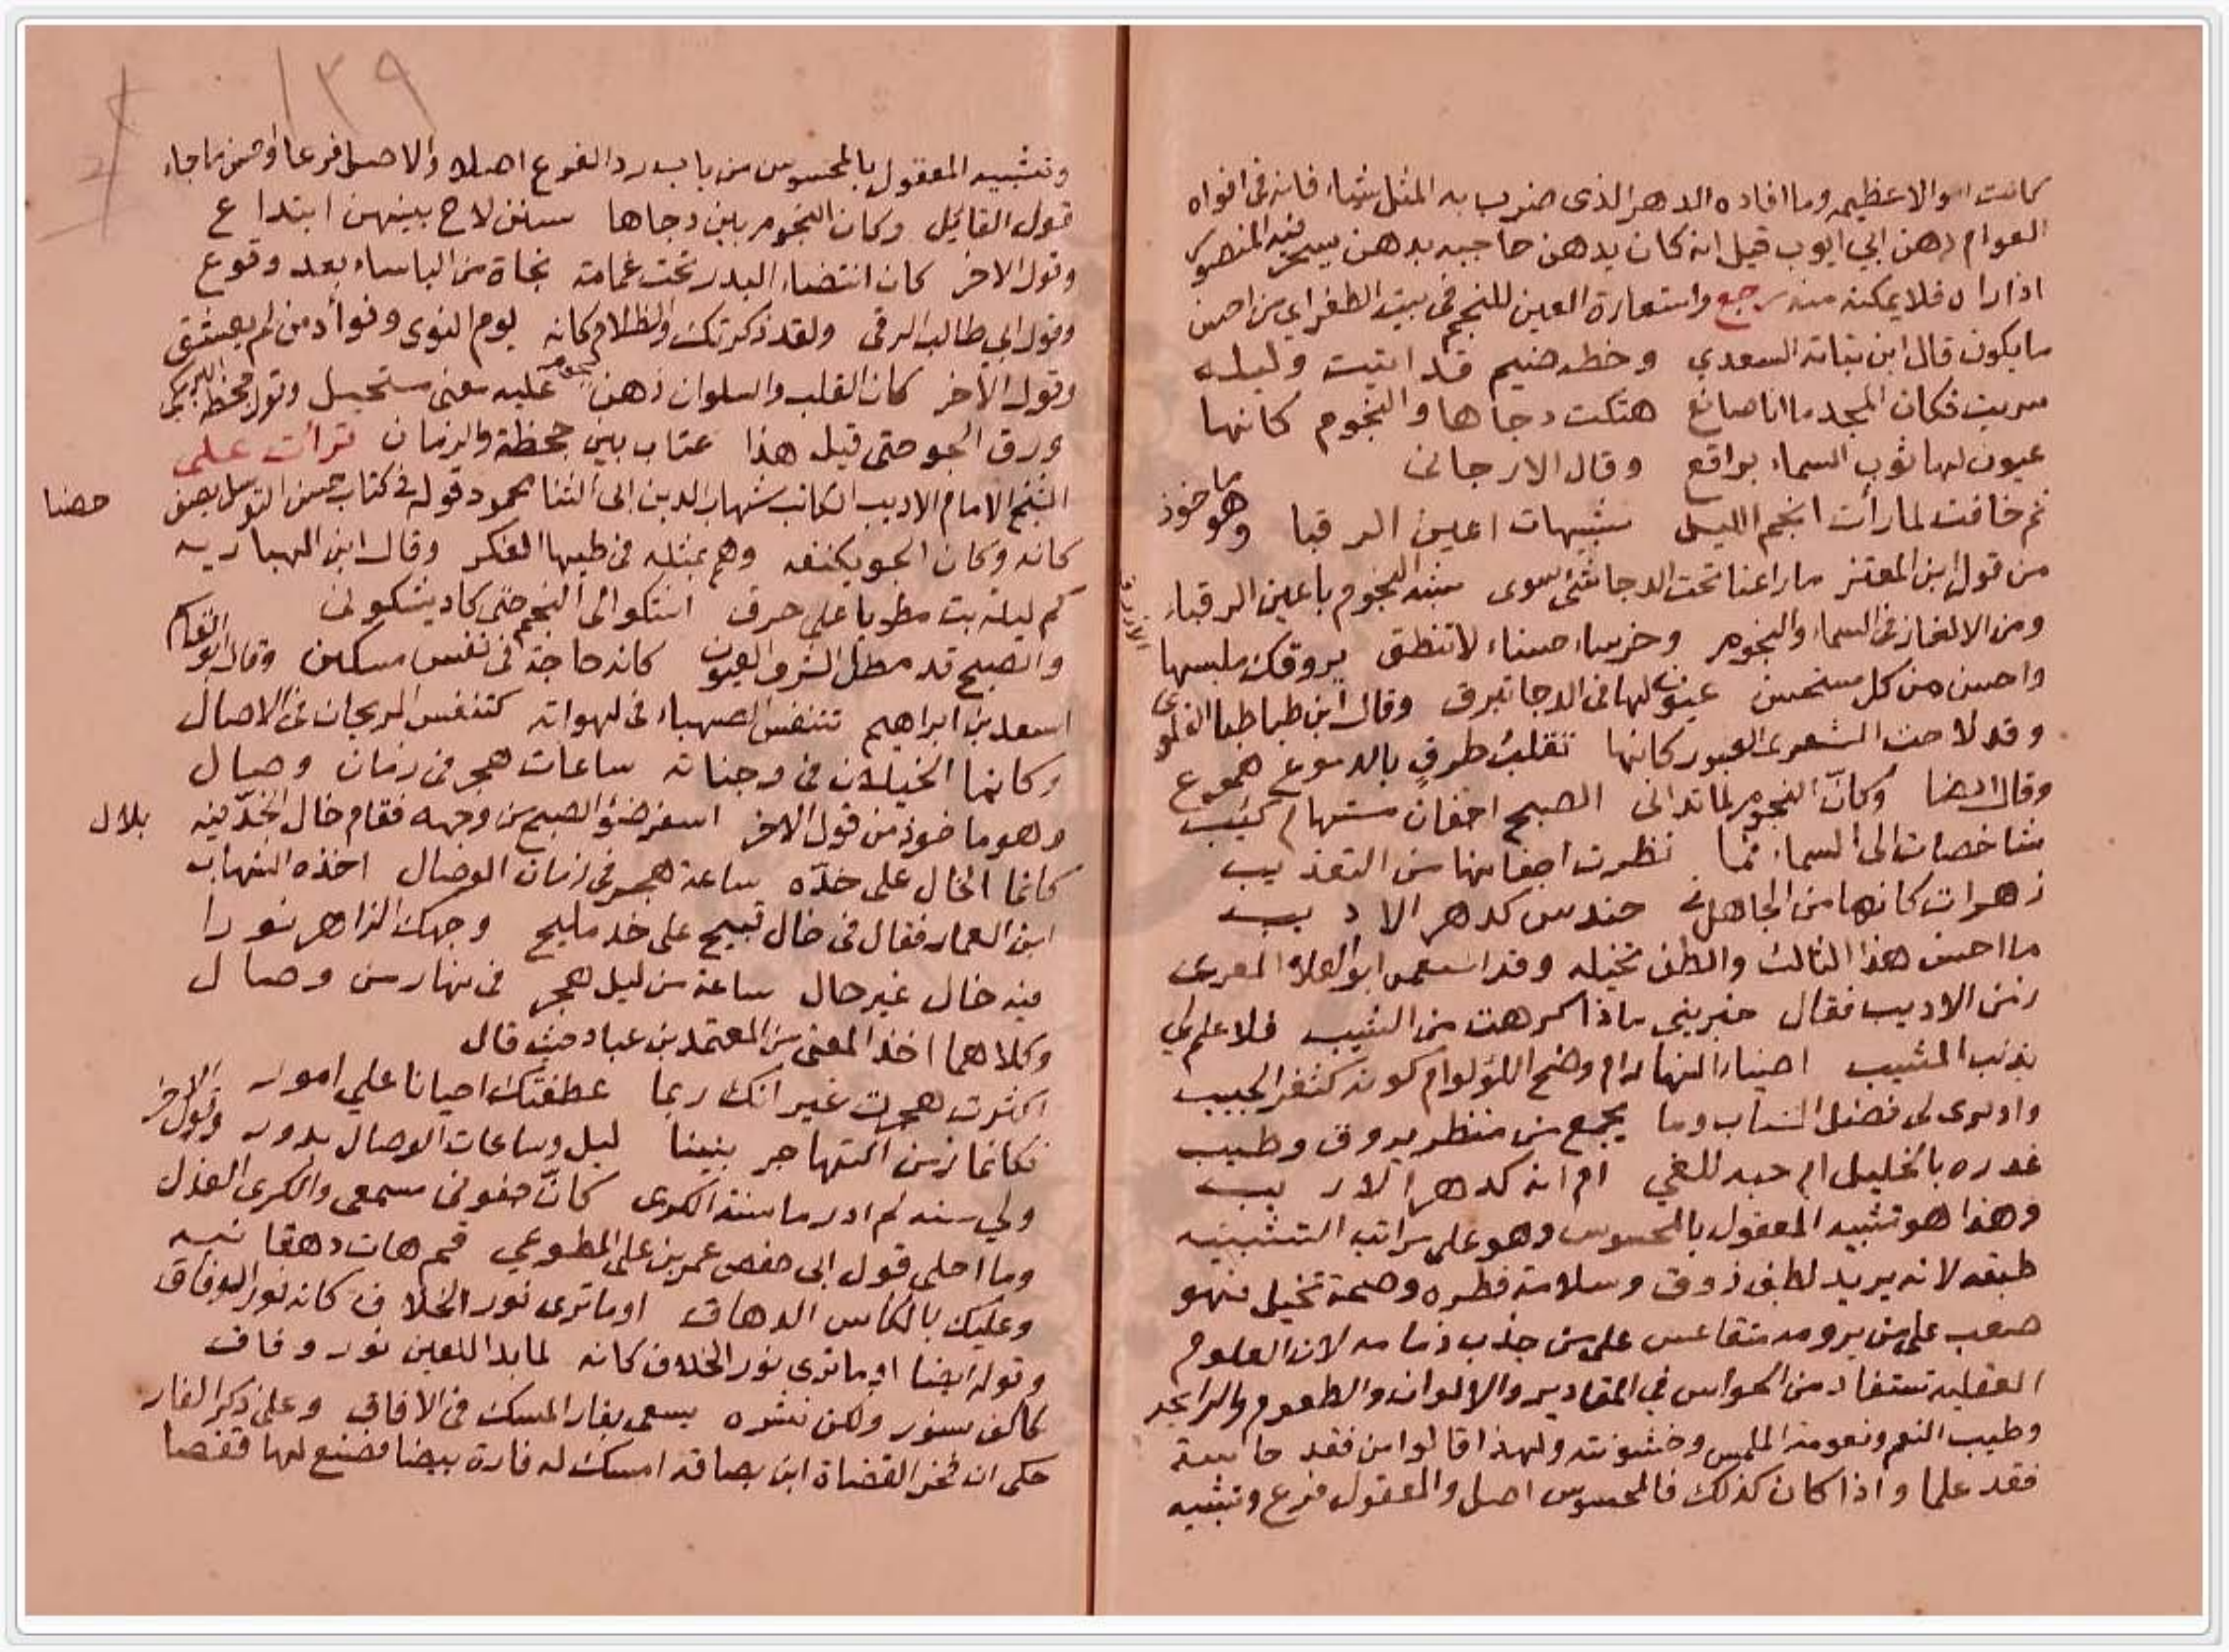 كانت اموالا عظيمه وما افاده الدهر الذى ضرب به المثل شيئا فانه فى افواه
العوام دهن ابي ايوب قيل انه كان يدهن حاجبه بدهن يسحر فيه المنصور
اذا راه فلا يمكنه منه رجع واستعارة العين للنجم فى بيت الطغراي من احسن
ما يكون قال ابن نباته السعدي وخطه ضيم قد ابيت وليله
سريت فكان المجد ما انا صانع هتكت دجاها والنجوم كانها
عيون لها ثوب السماء براقع وقال الارجانى
ثم خافت لما رأت انجم الليل شبيهات اعين الرقبا وهو ماخوذ
من قول ابن المعتز ما راعنا تحت الدجا شئ سوى شبه النجوم باعين الرقباء
ومن الالغاز فى السماء والنجوم وخرساء حسناء لا تنطق يروقك ملبسها الازرق
واحسن من كل مستحسن عيون لها فى الدجا تبرق وقال ابن طباطبا العلوى
وقد لاحت الشعرى العبور كانها تقلب طرف بالدموع هموع
وقال ايضا وكانّ النجوم لما تدانى الصبح اجفان مستهام كئيب
شاخصات الى السماء فما نظرت اجفانها من التعذيب
زهرات كانها من الجاهل فى حندس كدهر الاديب
ما احسن هذا الثالث والطف تخيله وقد استعمل ابو العلاء المعرى
زمن الاديب فقال خبرينى ماذا كرهت من الشيب فلا علم لي
بذنب المشيب اضياء النهار ام وضح اللؤلؤ ام كونه كثغر الحبيب
واذكرى لى فضل الشباب وما يجمع من منظر يروق وطيب
غدره بالخليل ام حبه للغي ام انه كدهر الاريب
وهذا هو تشبيه المعقول بالمحسوس وهو على مراتب التشبيه
طبقه لانه يريد لطف ذوق وسلامة فطره وصحة تخيل فهو
صعب على من يرومه متقاعس على من جذب زمامه لان العلوم
العقليه تستفاد من الحواس في المقادير والالوان والطعوم والرايحه
وطيب النغم ونعومة الملمس وخشونته ولهذا قالوا من فقد حاسة
فقد علما واذا كان كذلك فالمحسوس اصل والمعقول فرع وتشبيه
١٣٩
وتشبيه المعقول بالمحسوس من باب رد الفرع اصلا والاصل فرعا ومن احسن ما جاء
قول القايل وكان النجوم بين دجاها سنن لاح بينهن ابتداع
وقول الاخر كان انتضاء البدر تحت غمامة نجاة من الباساء بعد وقوع
وقول ابي طالب الرقى ولقد ذكرتك والظلام كانه يوم النوى وفوأد من لم يعشق
وقول الاخر كان القلب والسلوان ذهن يحوم عليه معنى مستحيل وقول جحظة البرمكى
ورق الجو حتى قيل هذا عتاب بين جحظة والزمان قرأت على
الشيخ الامام الاديب الكاتب شهاب الدين ابى الثنا محمود قوله فى كتاب حسن التوسل يصف حصنا
كانه وكان الجو يكنفه وهم يمثله فى طيها الفكر وقال ابن الهباريه
كم ليلة بت مطويا على حرق اشكو الى النجم حتى كاد يشكونى
والصبح قد مطل الشرق العيون كانه حاجة فى نفس مسكين وقال ابو القاسم
اسعد بن ابراهيم تتنفس الصهباء فى لهواته كتنفس الريحان فى الاصال
وكانما الخيلان فى وجناته ساعات هجر فى زمان وصال
وهو ماخوذ من قول الاخر اسفر ضؤ الصبح من وجهه فقام خال الخد فيه بلال
كانما الخال على خده ساعة هجر فى زمان الوصال اخذه الشهاب
ابن العمار فقال فى خال قبيح على خد مليح وجهك الزاهر نورا
فيه خال غير حال ساعة من ليل هجر فى نهار من وصال
وكلاهما اخذ المعنى من المعتمد بن عباد حيث قال
اكثرت هجرك غير انك ربما عطفتك احيانا علي امور
فكانما زمن التهاجر بيننا ليل وساعات الوصال بدور وقول الاخر
ولي سنه لم ادر ما سنة الكرى كانّ جفونى مسمعى والكرى العذل
وما احلى قول ابى حفص عمر بن على المطوعي قم هات دهقانيه
وعليك بالكاس الدهاق اوما ترى نور الخلاف كانه نور الوفاق
وقوله ايضا اوما ترى نور الخلاف كانه لما بدا للعين نور وفاق
كاكف سنور ولكن نشره يسعى بفار المسك فى الافاق وعلى ذكر الفار
حكى ان فخر القضاة ابن بصاقه امسك له فارة بيضا فصنع لها قفصا